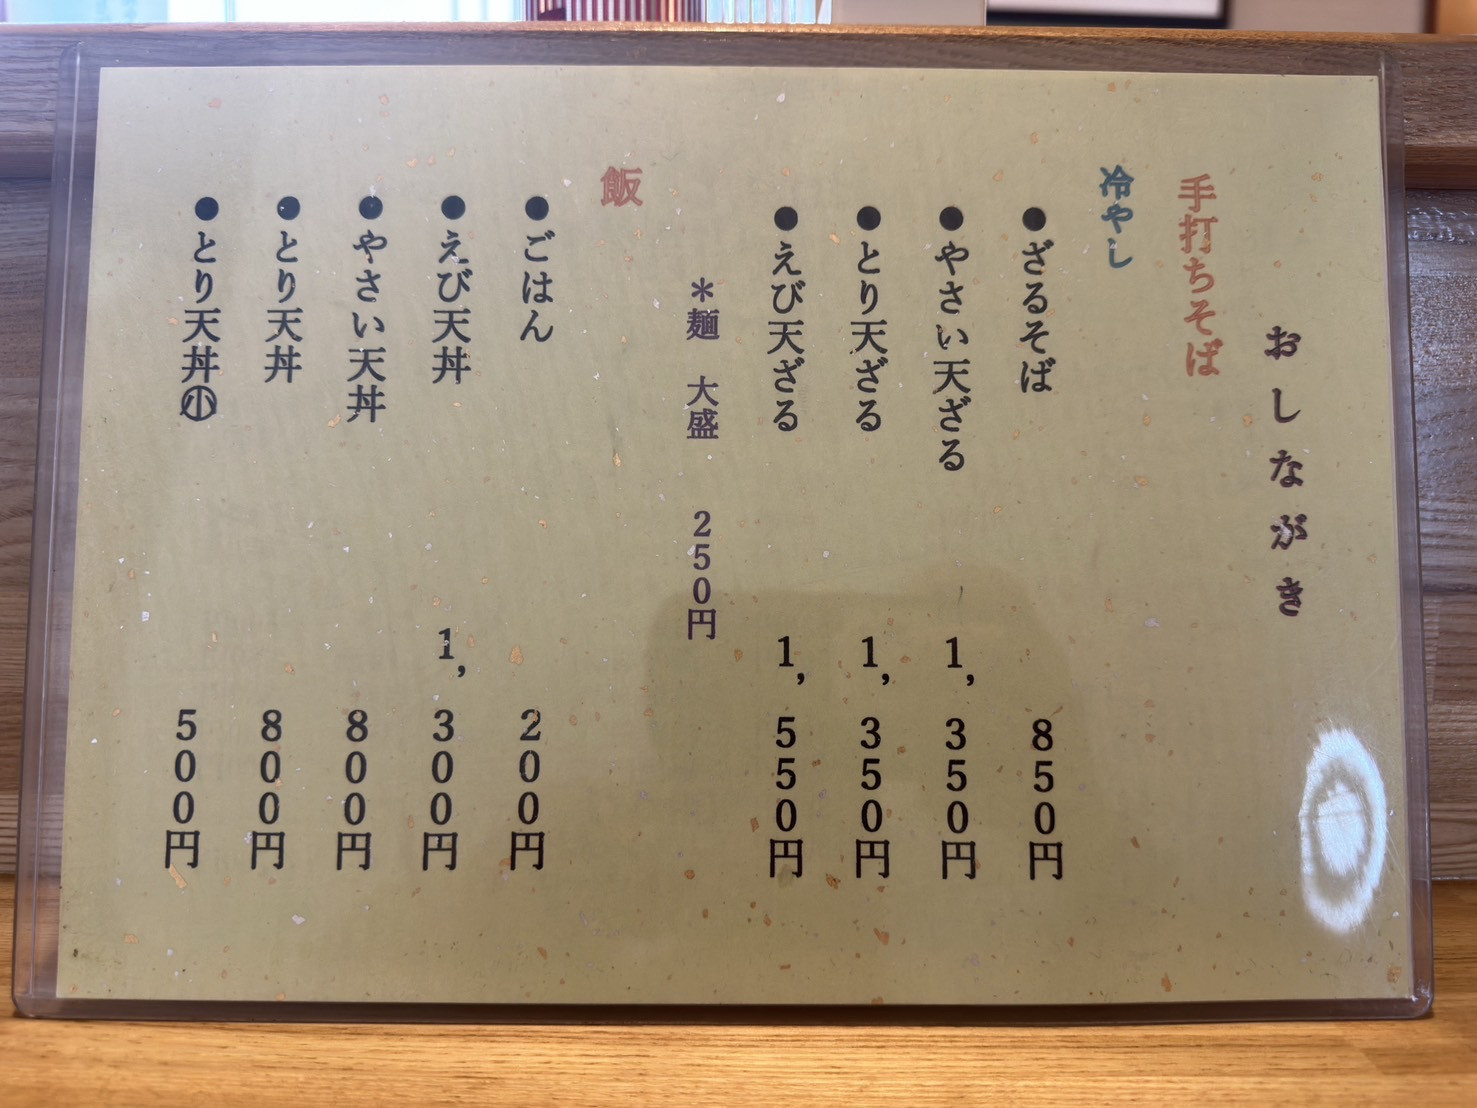 おしながき
手打ちそば
冷やし
●ざるそば 850円
●やさい天ざる 1,350円
●とり天ざる 1,350円
●えび天ざる 1,550円
＊麺 大盛 250円
飯
●ごはん 200円
●えび天丼 1,300円
●やさい天丼 800円
●とり天丼 800円
●とり天丼㊥小 500円